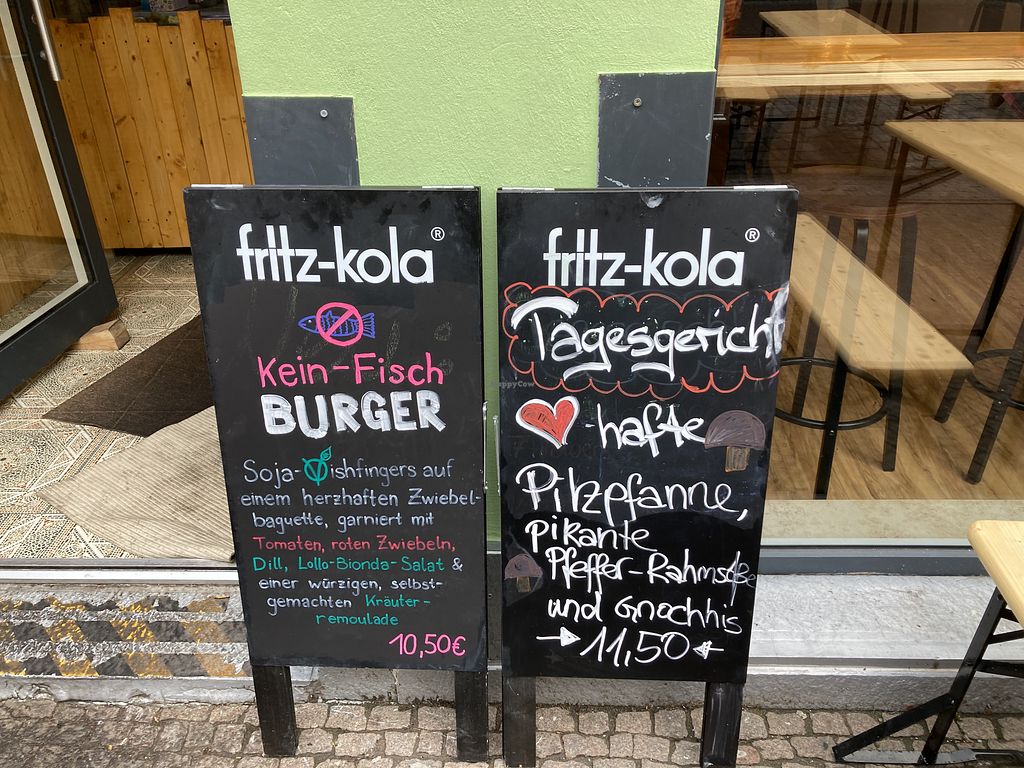 fritz-kola®
Kein-Fisch
BURGER
Soja-Vishfingers auf
einem herzhaften Zwiebel-
baguette, garniert mit
Tomaten, roten Zwiebeln,
Dill, Lollo-Bionda-Salat &
einer würzigen, selbst-
gemachten Kräuter-
remoulade
10,50€
fritz-kola®
Tagesgericht
hafte
Pilzpfanne,
pikante
Pfeffer-Rahmsoße
und Gnochhis
11,50
HappyCow